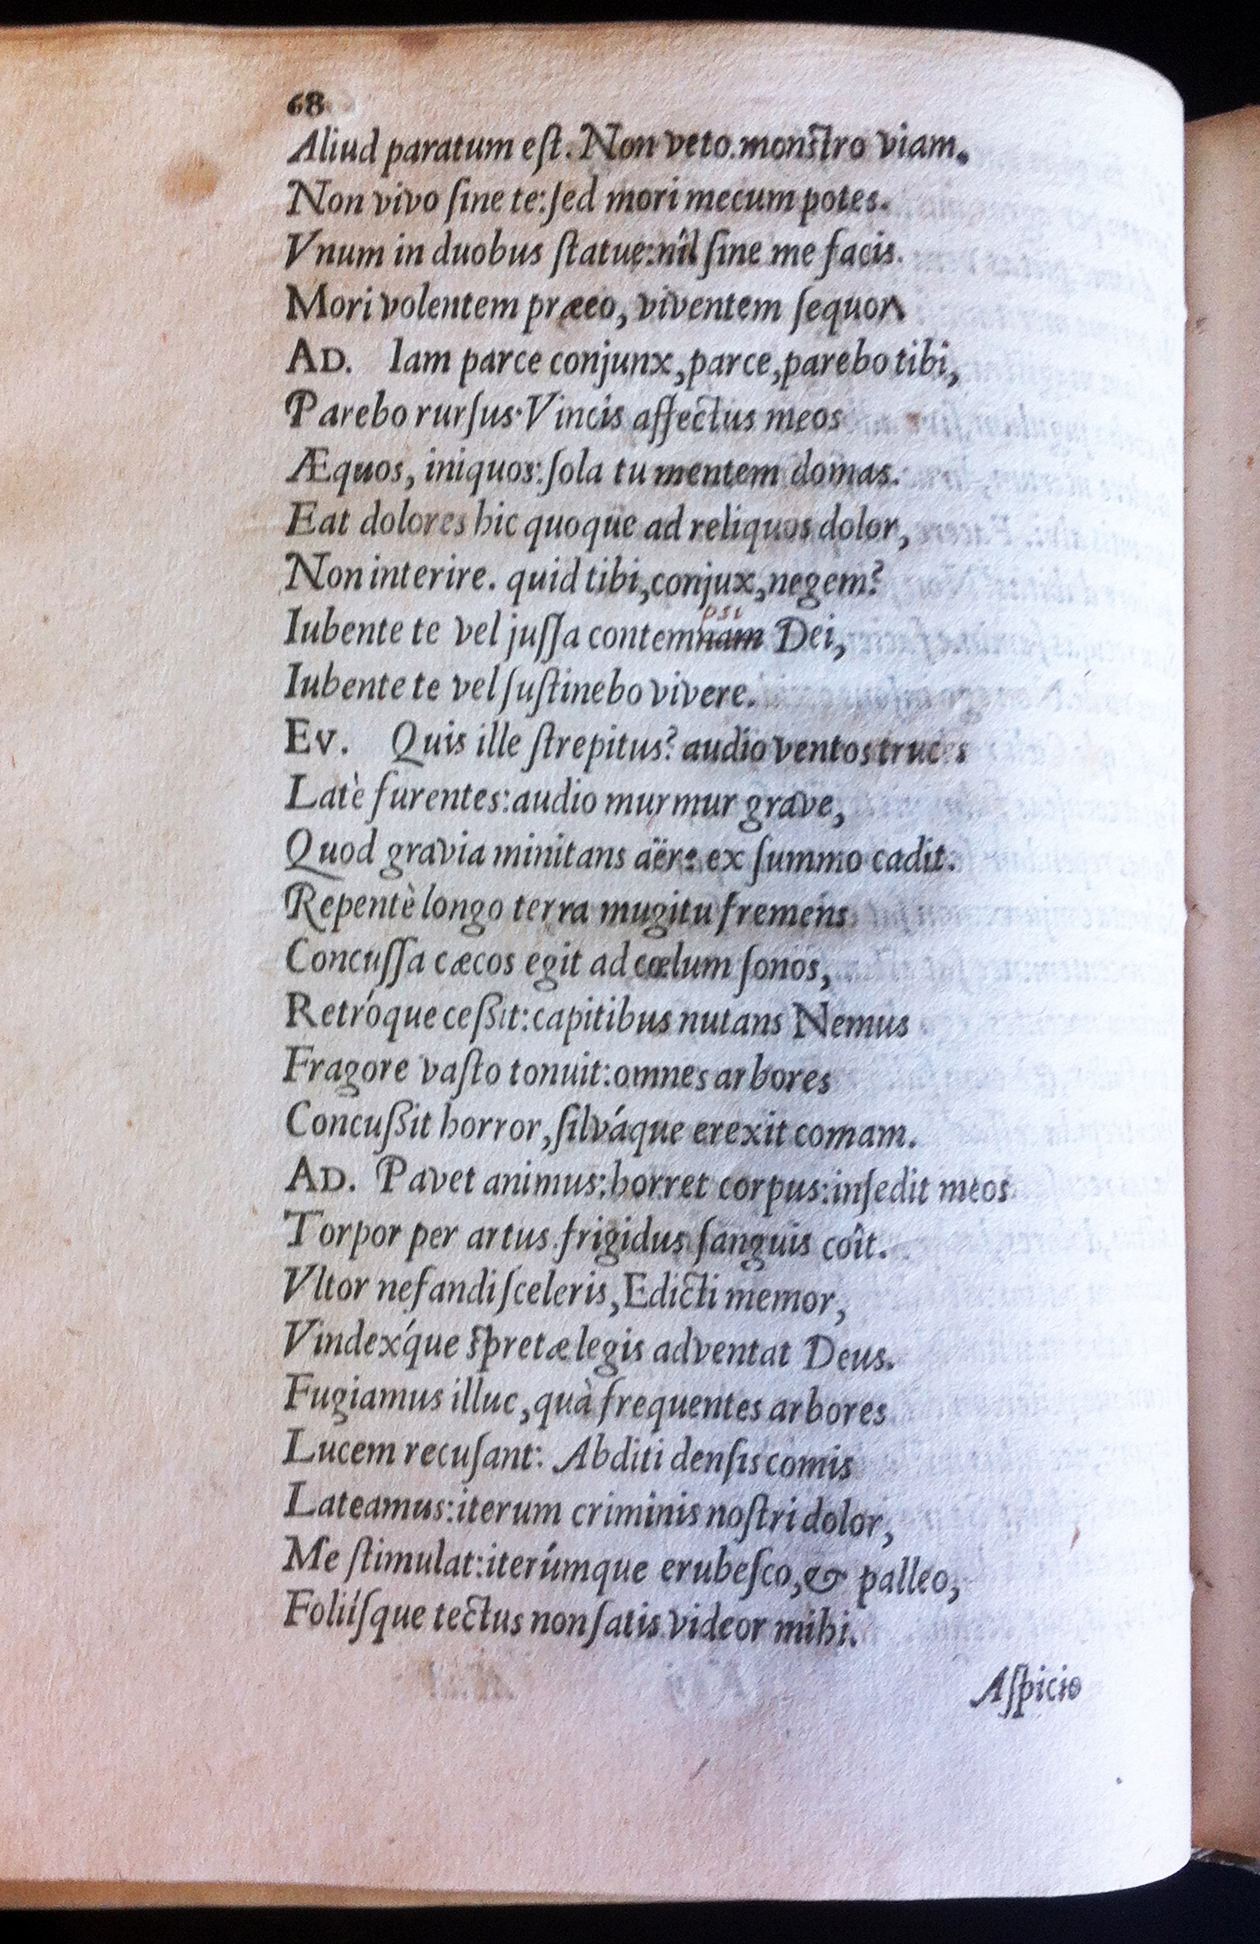 68
Aliud paratum eſt. Non veto. monſtro viam.
Non vivo ſine te: ſed mori mecum potes.
Vnum in duobus ſtatue: nîl ſine me facis.
Mori volentem præeo, viventem ſequor
AD. Iam parce conjunx, parce, parebo tibi,
Parebo rurſus. Vincis affectus meos
Æquos, iniquos: ſola tu mentem domas.
Eat dolores hic quoque ad reliquos dolor,
Non interire. quid tibi, conjux, negem?
psi
Iubente te vel juſſa contemnam Dei,
Iubente te vel ſuſtinebo vivere.
EV. Quis ille ſtrepitus? audio ventos truces
Latè furentes: audio murmur grave,
Quod gravia minitans aëre ex ſummo cadit.
Repentè longo terra mugitu fremens
Concuſſa cæcos egit ad cœlum ſonos,
Retróque ceßit: capitibus nutans Nemus
Fragore vaſto tonuit: omnes arbores
Concußit horror, ſilváque erexit comam.
AD. Pavet animus: horret corpus: inſedit meos
Torpor per artus. frigidus ſanguis coît.
Vltor nefandi ſceleris, Edicti memor,
Vindex́que ſpretæ legis adventat Deus.
Fugiamus illuc, quà frequentes arbores
Lucem recuſant: Abditi denſis comis
Lateamus: iterum criminis noſtri dolor,
Me ſtimulat: iterúmque erubeſco, & palleo,
Foliíſque tectus non ſatis videor mihi.
Aſpicio